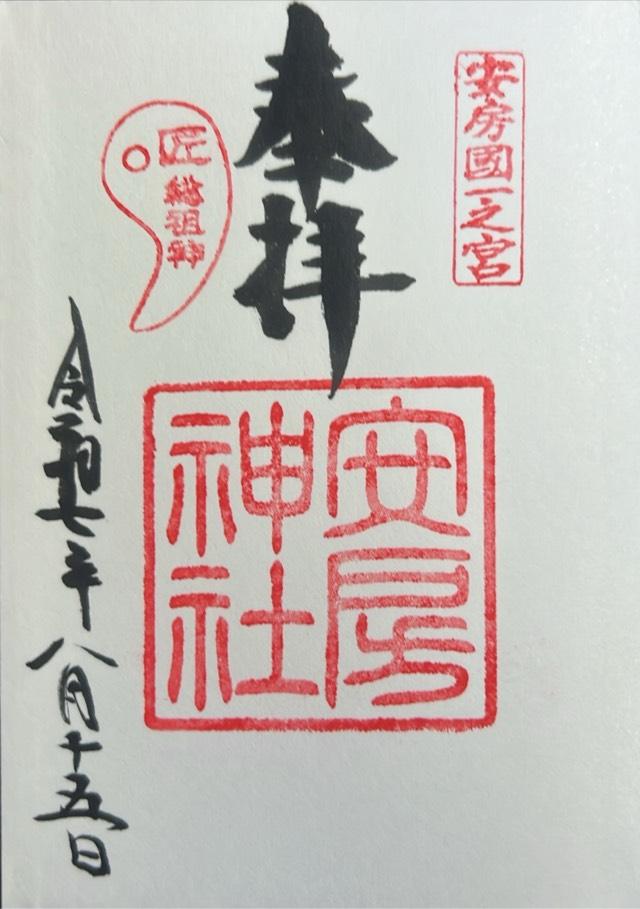 安房國一之宮
奉拝
匠
総祖神
安房
神社
令和七年八月十五日